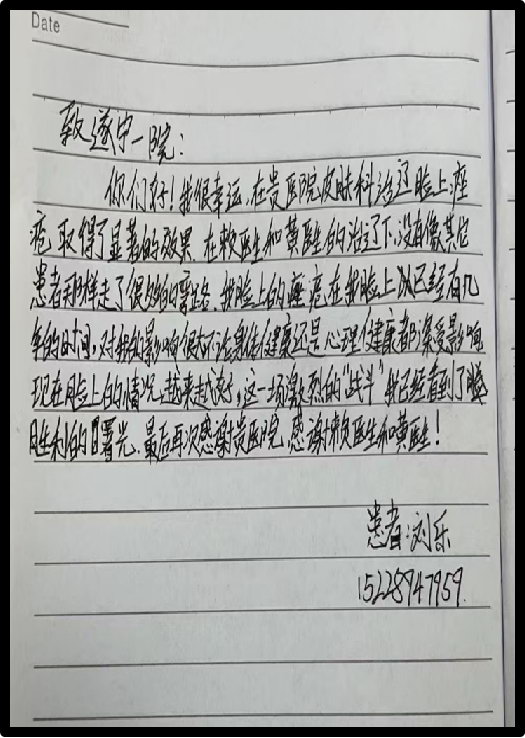 Date
致遂宁一院：
你们好！我很幸运，在贵医院皮肤科治疗脸上痤
疮取得了显著的效果，在赖医生和黄医生的治疗下，没有像其他
患者那样走了很多的弯路，我脸上的痤疮在我脸上以已经有几
年的时间，对我的影响很大，无论身体健康还是心理健康都深受影响
现在脸上的情况，越来越好，这一场激烈的"战斗"我已经看到了
胜利的曙光，最后再次感谢贵医院，感谢赖医生和黄医生！
患者：刘乐
15228947959